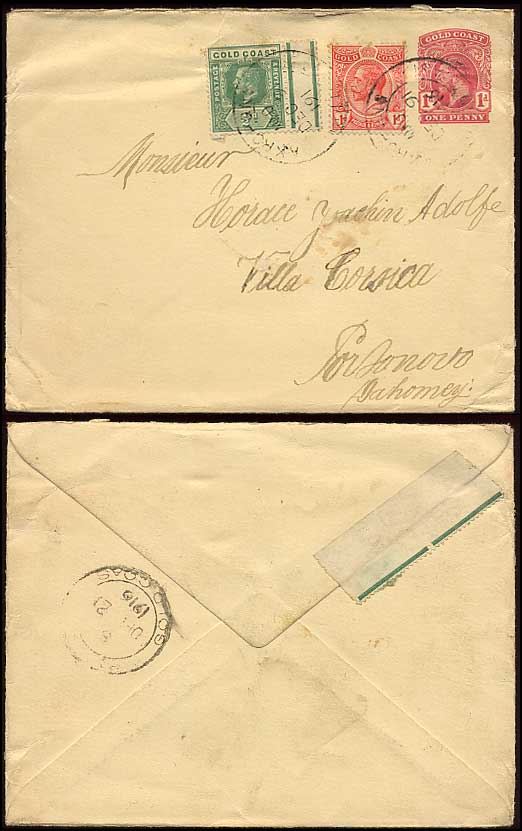 GOLD COAST
POSTAGE
REVENUE
GOLD COAST
1D
GOLD COAST
1D 1D
ONE PENNY
Monsieur
Horace Joachin Adolfe
Villa Corsica
Porsonovo
Dahomey.
GOLD COAS
DE 21
1916